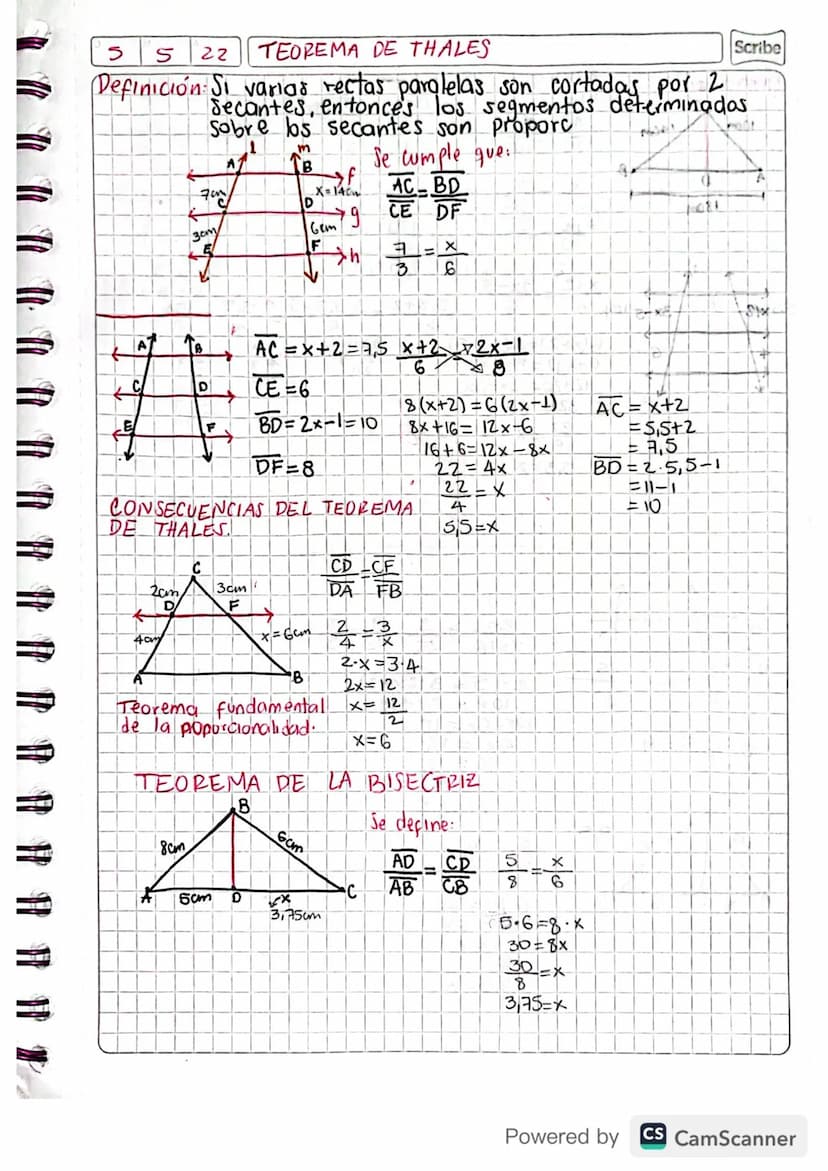 5 5 22 TEOREMA DE THALES Scribe
Definición: Si varias rectas paralelas son cortadas por 2
secantes, entonces los segmentos determinados
sobre los secantes son proporc
Se cumple que:
l m
A B f
7cm x=14cm
C D g
3cm 6cm
E F h
AC/CE = BD/DF
7/3 = x/6
A B
C D
E F
AC = x+2 = 7,5
CE = 6
BD = 2x-1 = 10
DF = 8
x+2/6 = 2x-1/8
8(x+2) = 6(2x-1)
8x+16 = 12x-6
16+6 = 12x-8x
22 = 4x
22/4 = x
5,5 = x
AC = x+2
= 5,5+2
= 7,5
BD = 2·5,5-1
= 11-1
= 10
CONSECUENCIAS DEL TEOREMA
DE THALES.
C
2cm 3cm
D F
4cm x=6cm
A B
CD/DA = CF/FB
2/4 = 3/x
2·x = 3·4
2x = 12
x = 12/2
x = 6
Teorema fundamental
de la poporcionalidad.
TEOREMA DE LA BISECTRIZ
B
8cm 6cm
A 5cm D x C
3,75cm
Se define:
AD/AB = CD/CB
5/8 = x/6
5·6 = 8·x
30 = 8x
30/8 = x
3,75 = x
Powered by CS CamScanner